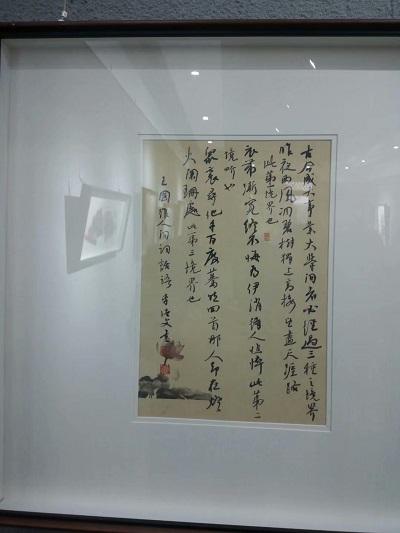 古今成大事業大學问者必經過三種之境界
昨夜西風凋碧樹獨上高樓望盡天涯路
此第一境界也
衣帶漸寬終不悔为伊消得人憔悴此第二
境界也
眾裏尋他千百度驀然回首那人卻在燈
火闌珊處此第三境界也
王國維人间詞話語